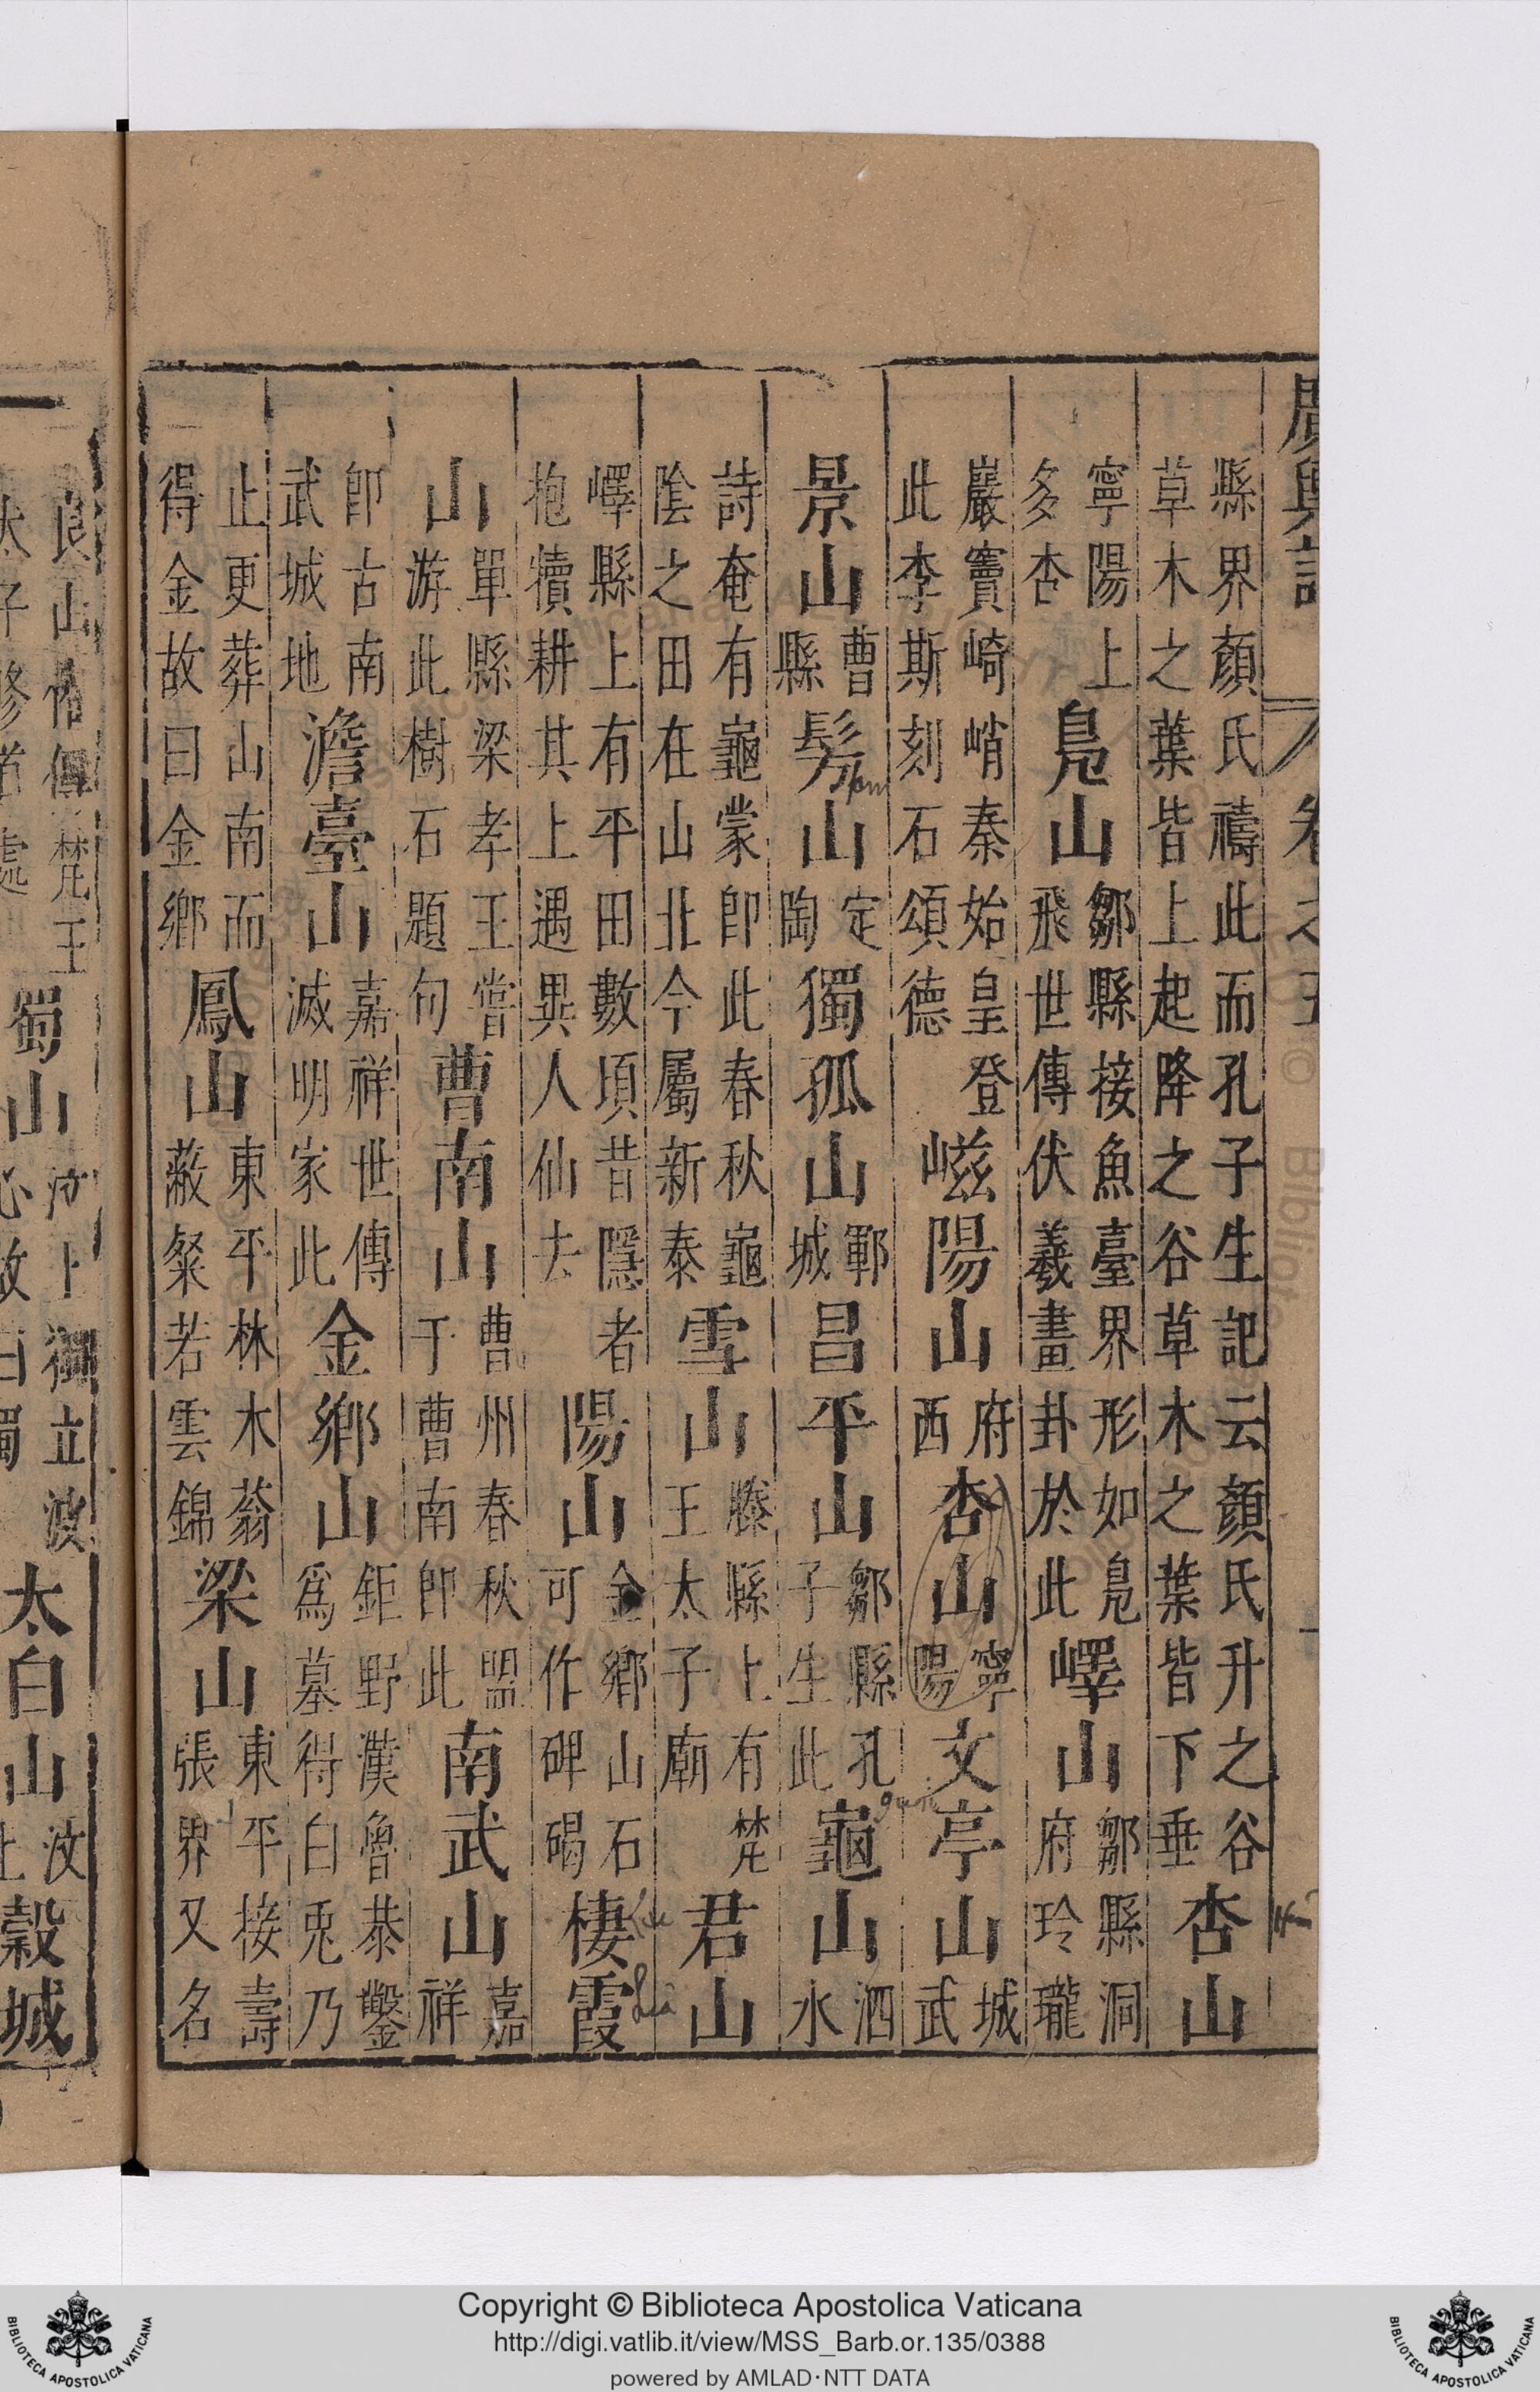 廣輿記 卷之五
縣界顏氏禱此而孔子生記云顏氏升之谷草木之葉皆上起降之谷草木之葉皆下垂杏山
寧陽上多杏鳬山鄒縣接魚臺界形如鳬飛世傳伏羲畫卦於此嶧山鄒縣洞府玲瓏
巖竇崎峭秦始皇登此李斯刻石頌德嵫陽山府西杏山寧陽文亭山城武
景山曹縣髣山定陶獨孤山鄆城昌平山鄒縣孔子生此龜山泗水
詩奄有龜蒙即此春秋龜陰之田在山北今屬新泰雪山滕縣上有梵王太子廟君山
嶧縣上有平田數頃昔隱者抱犢耕其上遇異人仙去陽山金鄉山石可作碑碣棲霞
山單縣梁孝王嘗游此樹石題句曹南山曹州春秋盟于曹南即此南武山嘉祥
即古南武城地澹臺山嘉祥世傳滅明家此金鄉山鉅野漢魯恭鑿爲墓得白兎乃
止更葬山南而得金故曰金鄉鳳山東平林木蓊蔽粲若雲錦梁山東平接壽張界又名
良山俗傳梵王太子修道處蜀山汶上獨立波心故曰蜀太白山汶上穀城
Copyright © Biblioteca Apostolica Vaticana
http://digi.vatlib.it/view/MSS_Barb.or.135/0388
powered by AMLAD·NTT DATA
BIBLIOTECA APOSTOLICA VATICANA
BIBLIOTECA APOSTOLICA VATICANA